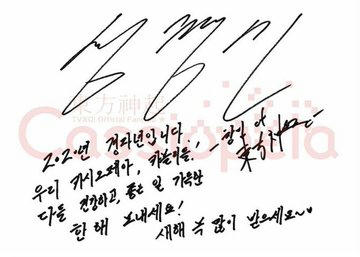 東方神起
TVXQ! Official Fanclub
Cassiopeia
2020년 경자년입니다.
우리 카시오페아, 카돌이들,
다들 건강하고, 좋은 일 가득한
한 해 보내세요!
새해 복 많이 받으세요~
-창민 of
東方神起-